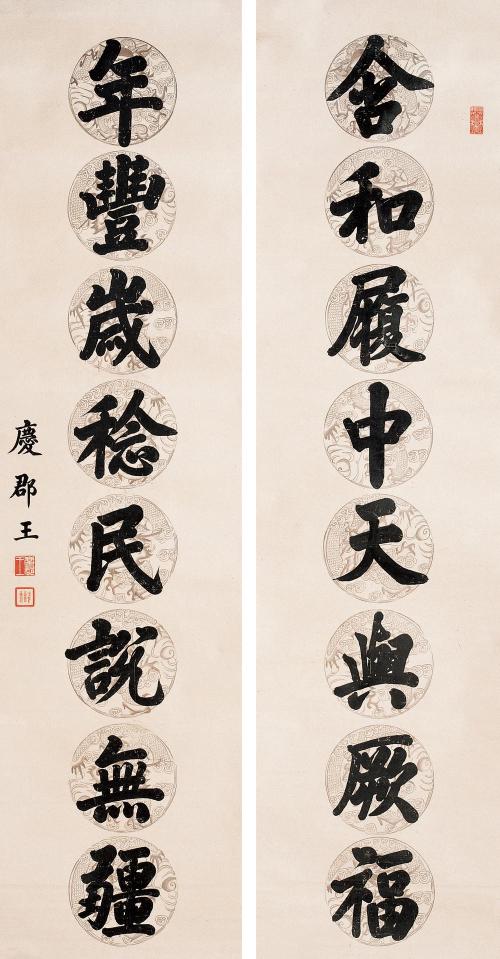 含和履中天與厥福
年豐歲稔民説無疆
慶郡王